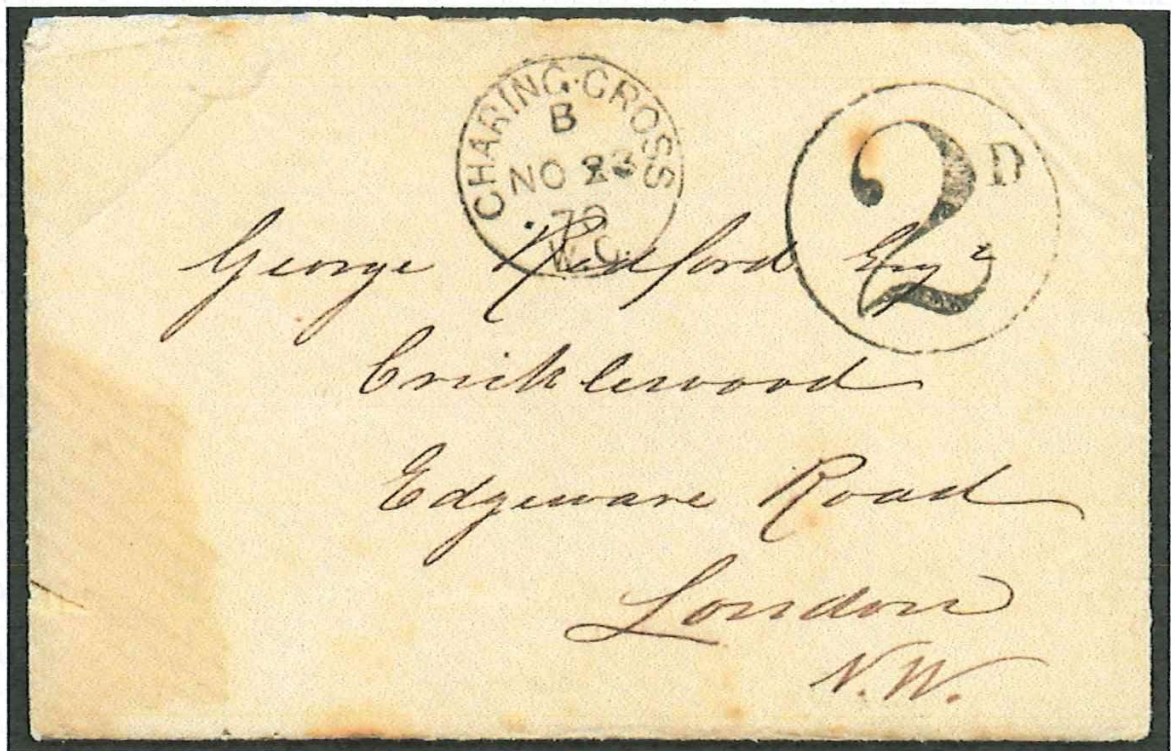 CHARING·CROSS
B
NO 23
W.C.
2D
George Radford Esqr
Cricklewood
Edgeware Road
London
N.W.